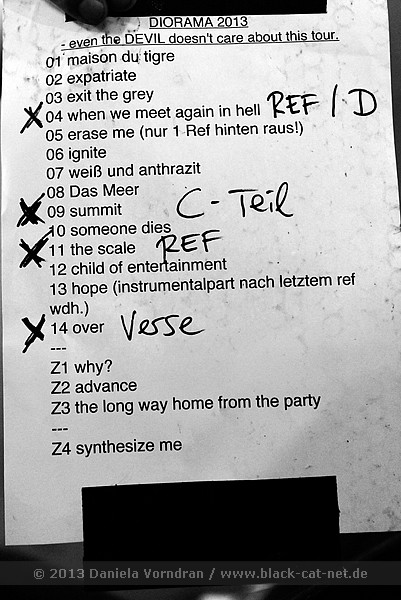 DIORAMA 2013
- even the DEVIL doesn't care about this tour.
01 maison du tigre
02 expatriate
03 exit the grey
X 04 when we meet again in hell REF / D
05 erase me (nur 1 Ref hinten raus!)
06 ignite
07 weiß und anthrazit
08 Das Meer
X 09 summit C-Teil
10 someone dies
X 11 the scale REF
12 child of entertainment
13 hope (instrumentalpart nach letztem ref
wdh.)
X 14 over Verse
---
Z1 why?
Z2 advance
Z3 the long way home from the party
---
Z4 synthesize me
© 2013 Daniela Vorndran / www.black-cat-net.de